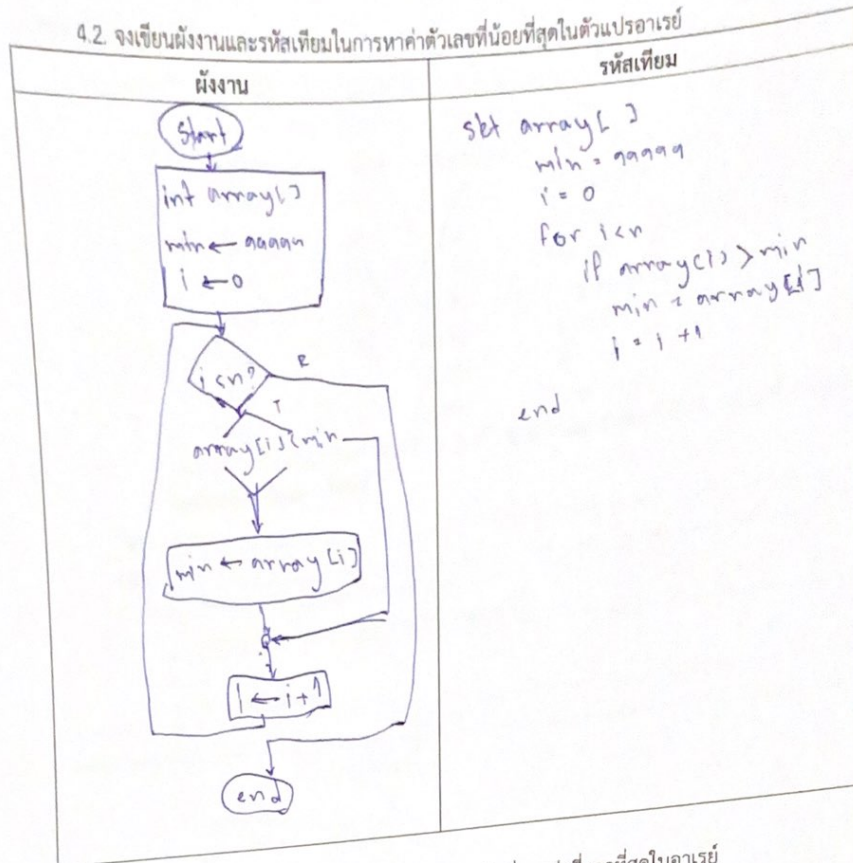 4.2. จงเขียนผังงานและรหัสเทียมในการหาค่าตัวเลขที่น้อยที่สุดในตัวแปรอาเรย์
ผังงาน
รหัสเทียม
Start
int array[]
min ← 99999
i ← 0
i<n?
T
array[i]<min
min ← array[i]
i ← i+1
end
set array[ ]
min = 99999
i = 0
for i<n
if array[i] > min
min = array[i]
i = i +1
end
ที่สุดในอาเรย์